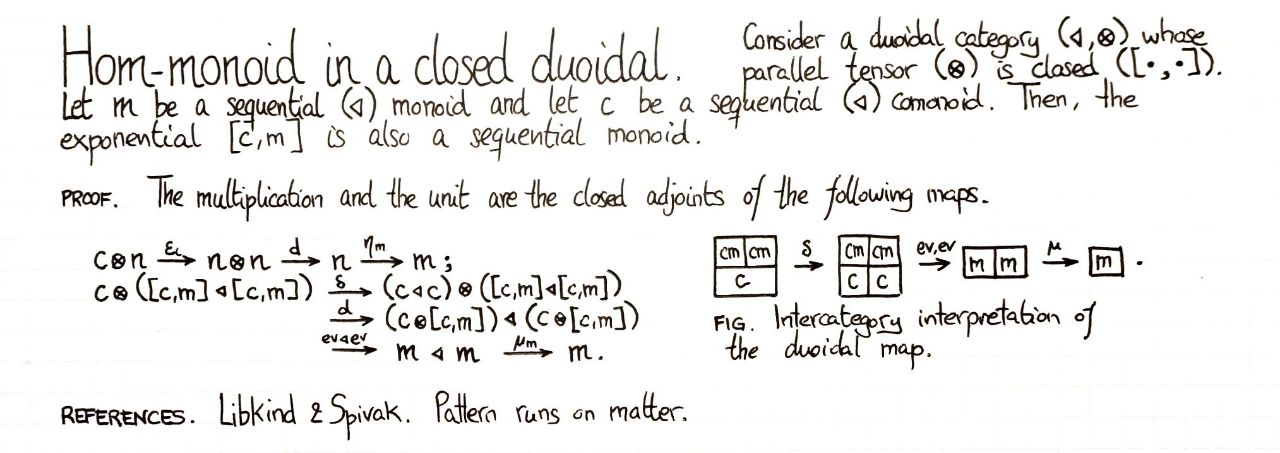 Hom-monoid in a closed duoidal.
Consider a duoidal category (◁,⊗) whose
parallel tensor (⊗) is closed ([•,•]).
Let m be a sequential (◁) monoid and let c be a sequential (◁) comonoid. Then, the
exponential [c,m] is also a sequential monoid.
PROOF. The multiplication and the unit are the closed adjoints of the following maps.
c⊗n —ε→ n⊗n —d→ n —ηm→ m;
c⊗([c,m]◁[c,m]) —δ→ (c◁c)⊗([c,m]◁[c,m])
—d→ (c⊗[c,m])◁(c⊗[c,m])
—ev◁ev→ m◁m —μm→ m.
cm cm —δ→ cm cm —ev,ev→ m m —μ→ m .
c c c
FIG. Intercategory interpretation of
the duoidal map.
REFERENCES. Libkind & Spivak. Pattern runs on matter.